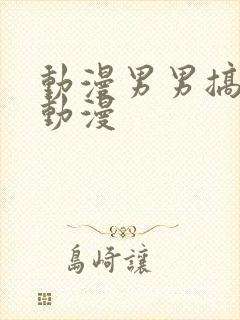 動漫男男搞
動漫
島崎讓